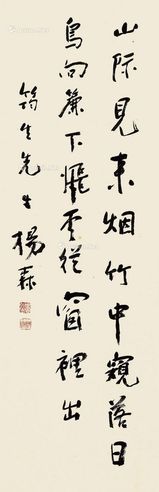 山际見来烟竹中窺落日
鳥向簾下飛雲從窗裡出
筠生先生 楊森